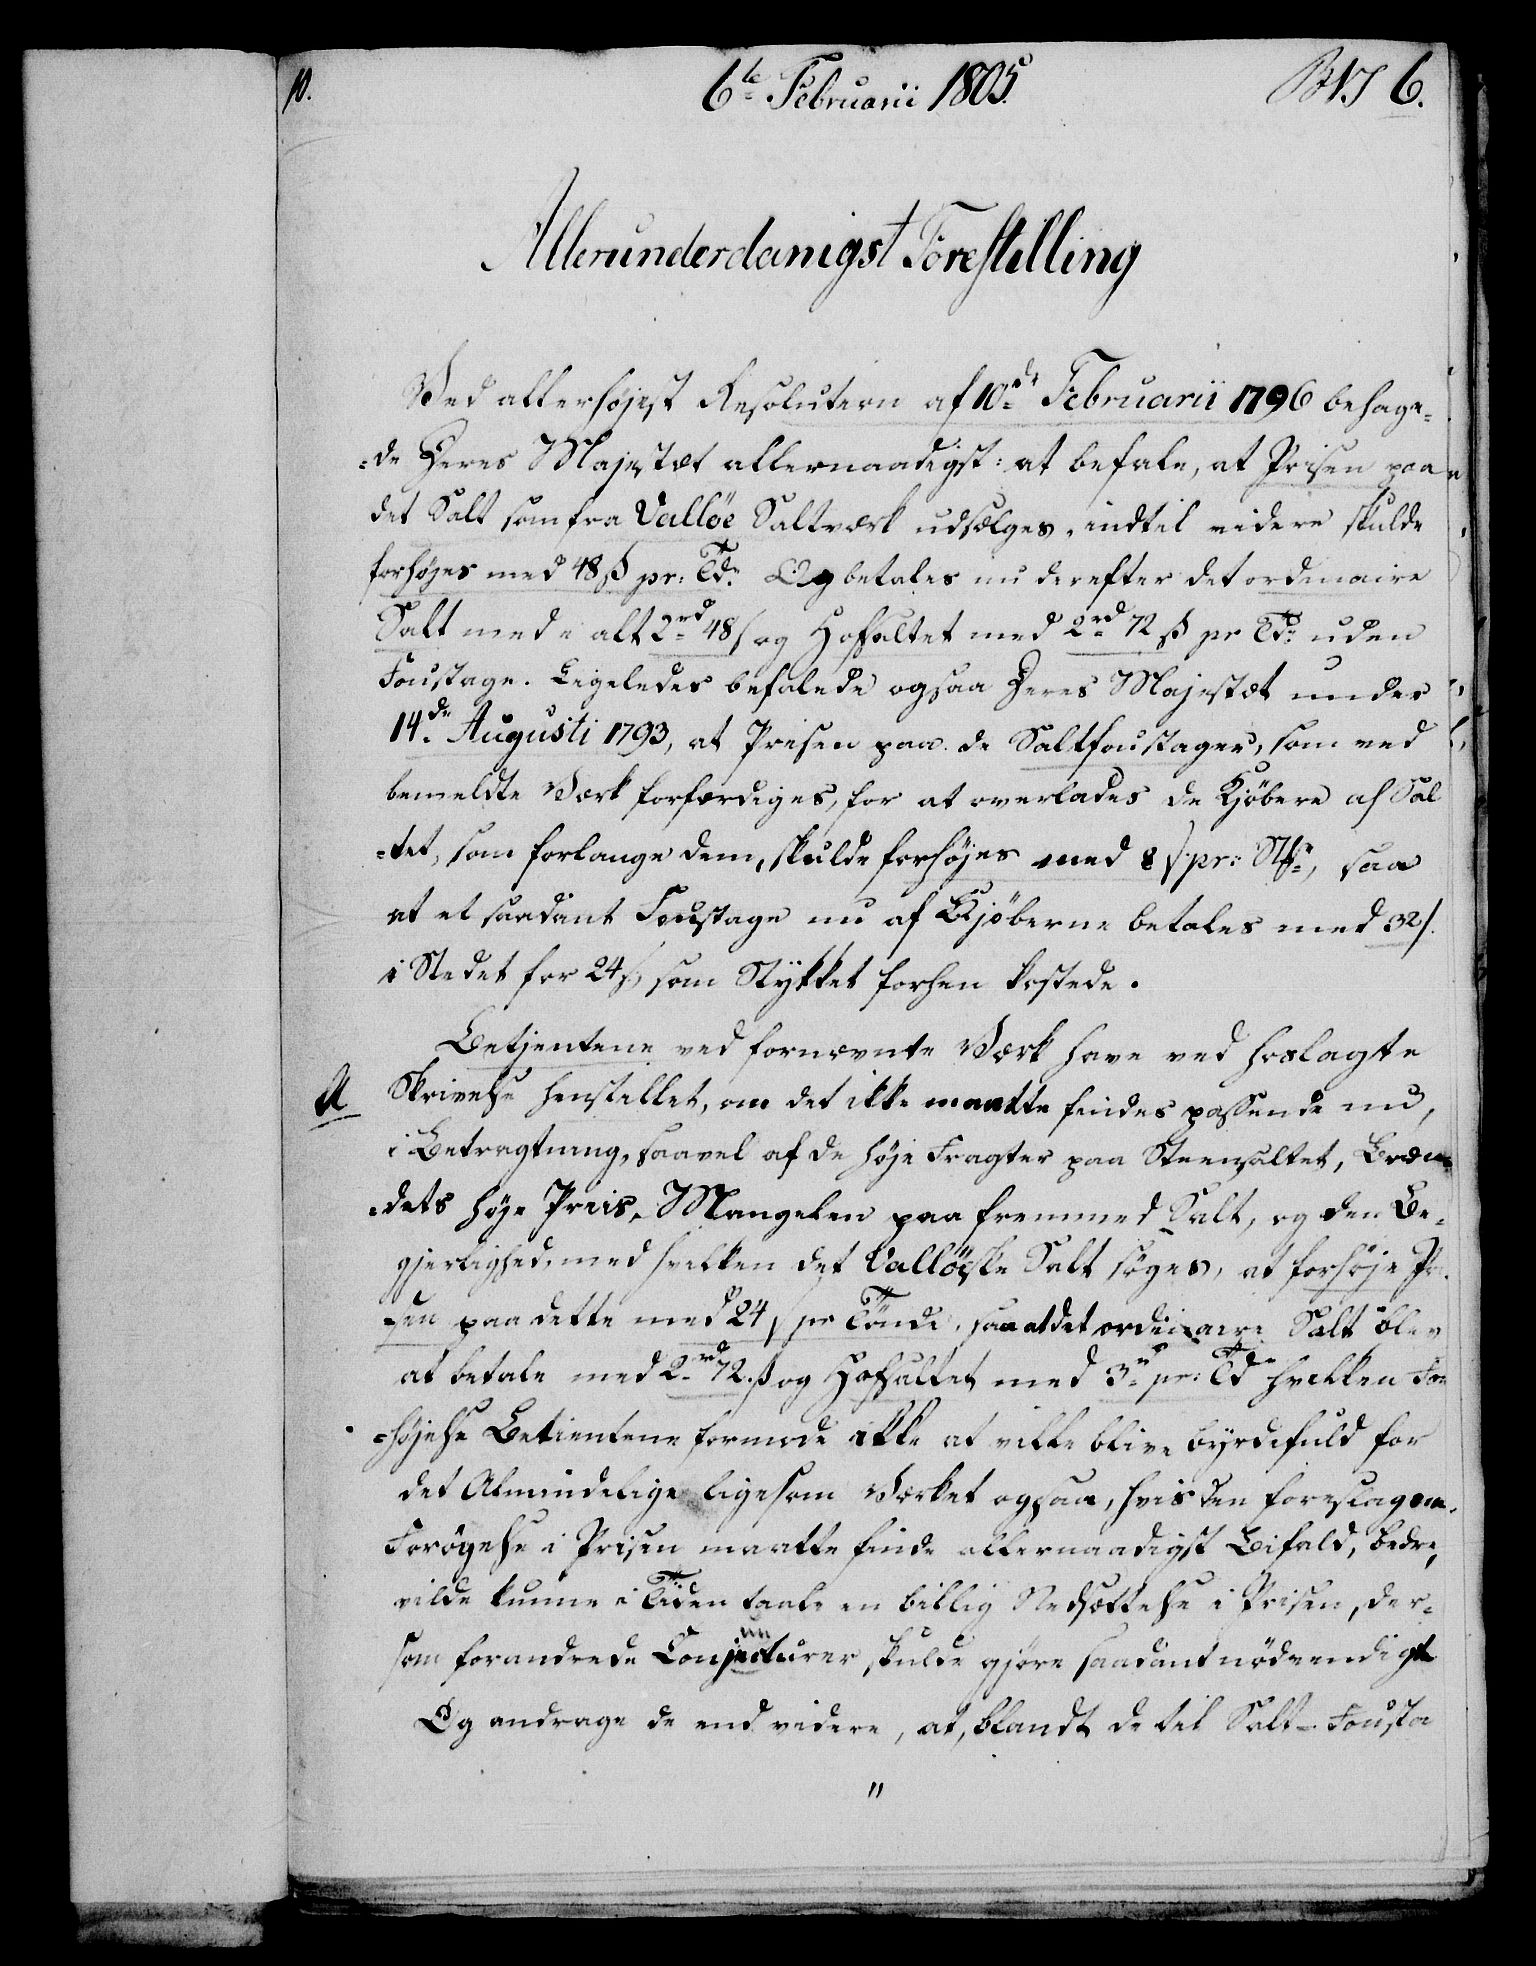 10.
6te Februarii 1805.
6.
Allerunderdanigst Forestilling
Ved allerhøjest Resolution af 10de Februarii 1796 behage=
=de Deres Majestæt allernaadigst: at befale, at Prisen paa
det Salt som fra Valløe Saltværk udsælges, indtil videre skulde
forhøjes med 48 ß pr: Tde. Og betales nu derefter det ordinaire
Salt med i alt 2rd 48 ß og Hofsaltet med 2rd 72 ß pr Tde uden
Foustage. Ligeledes befalede ogsaa Deres Majestæt under
14de Augusti 1793, at Prisen paa de Saltfoustager, som ved
bemeldte Værk forfærdiges, for at overlades de Kjøbere af Sal
=tet, som forlange dem, skulde forhøjes med 8 ß pr: Stk, saa
at et saadant Foustage nu af Kjøberne betales med 32 ß.
i Stedet for 24 ß, som Stykket forhen kostede.
Betjentene ved fornævnte Værk have ved hoslagte
A Skrivelse henstillet, om det ikke maatte findes passende nu,
i Betragtning, saavel af de høje Fragter paa Steensaltet, Bræn=
=dets høje Priis, Mangelen paa fremmed Salt, og den Be=
gjerlighed, med hvilken det Valløeske Salt søges, at forhøje Pri=
=sen paa dette med 24 ß pr Tønde, saa at det ordinaire Salt blev
at betale med 2rd 72 ß og Hofsaltet med 3rd pr: Td hvilken For
=højelse Betientene formode ikke at ville blive byrdefuld for
det Almindelige ligesom Værket ogsaa, hvis den foreslagne
Forøgelse i Prisen maatte finde allernaadigst Bifald, bedre,
vilde kunne i Tiden taale en billig Nedsættelse i Prisen, der=
som forandrede Conjuncturer skulde gjøre saadant nødvendigt
Og andrage de end videre, at, blandt de til Salt-Fousta
"